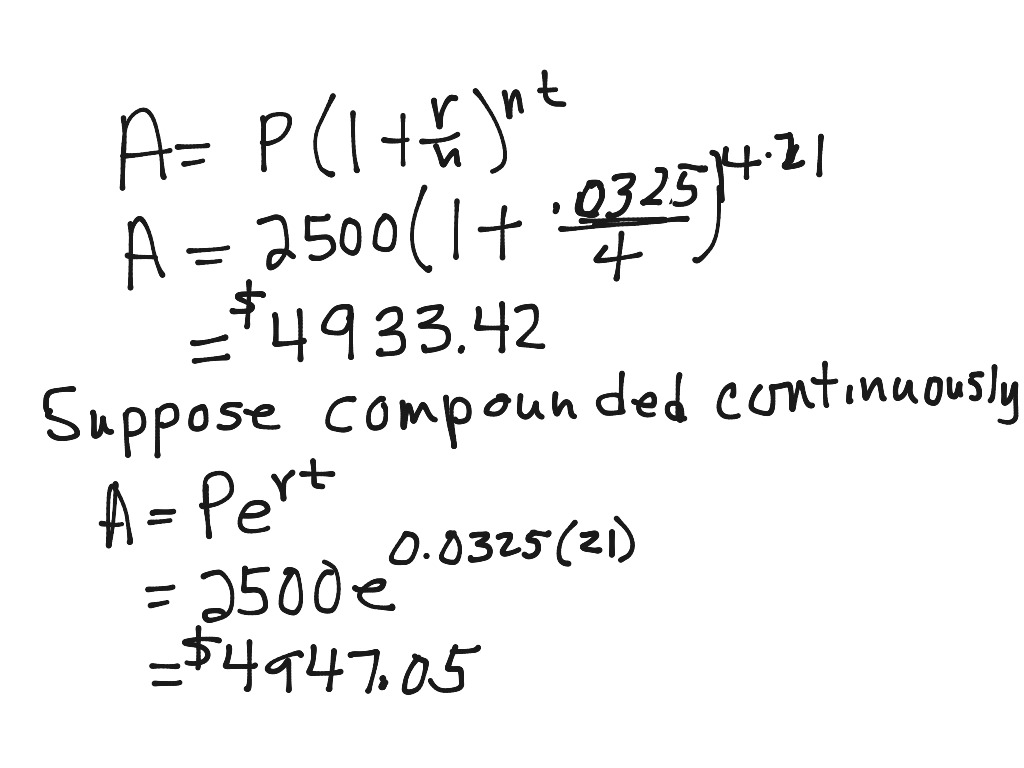 A = P(1 + r/n)^nt
A = 2500(1 + .0325/4)^4·21
= $4933.42
Suppose compounded continuously
A = Pe^rt
= 2500e^0.0325(21)
= $4947.05